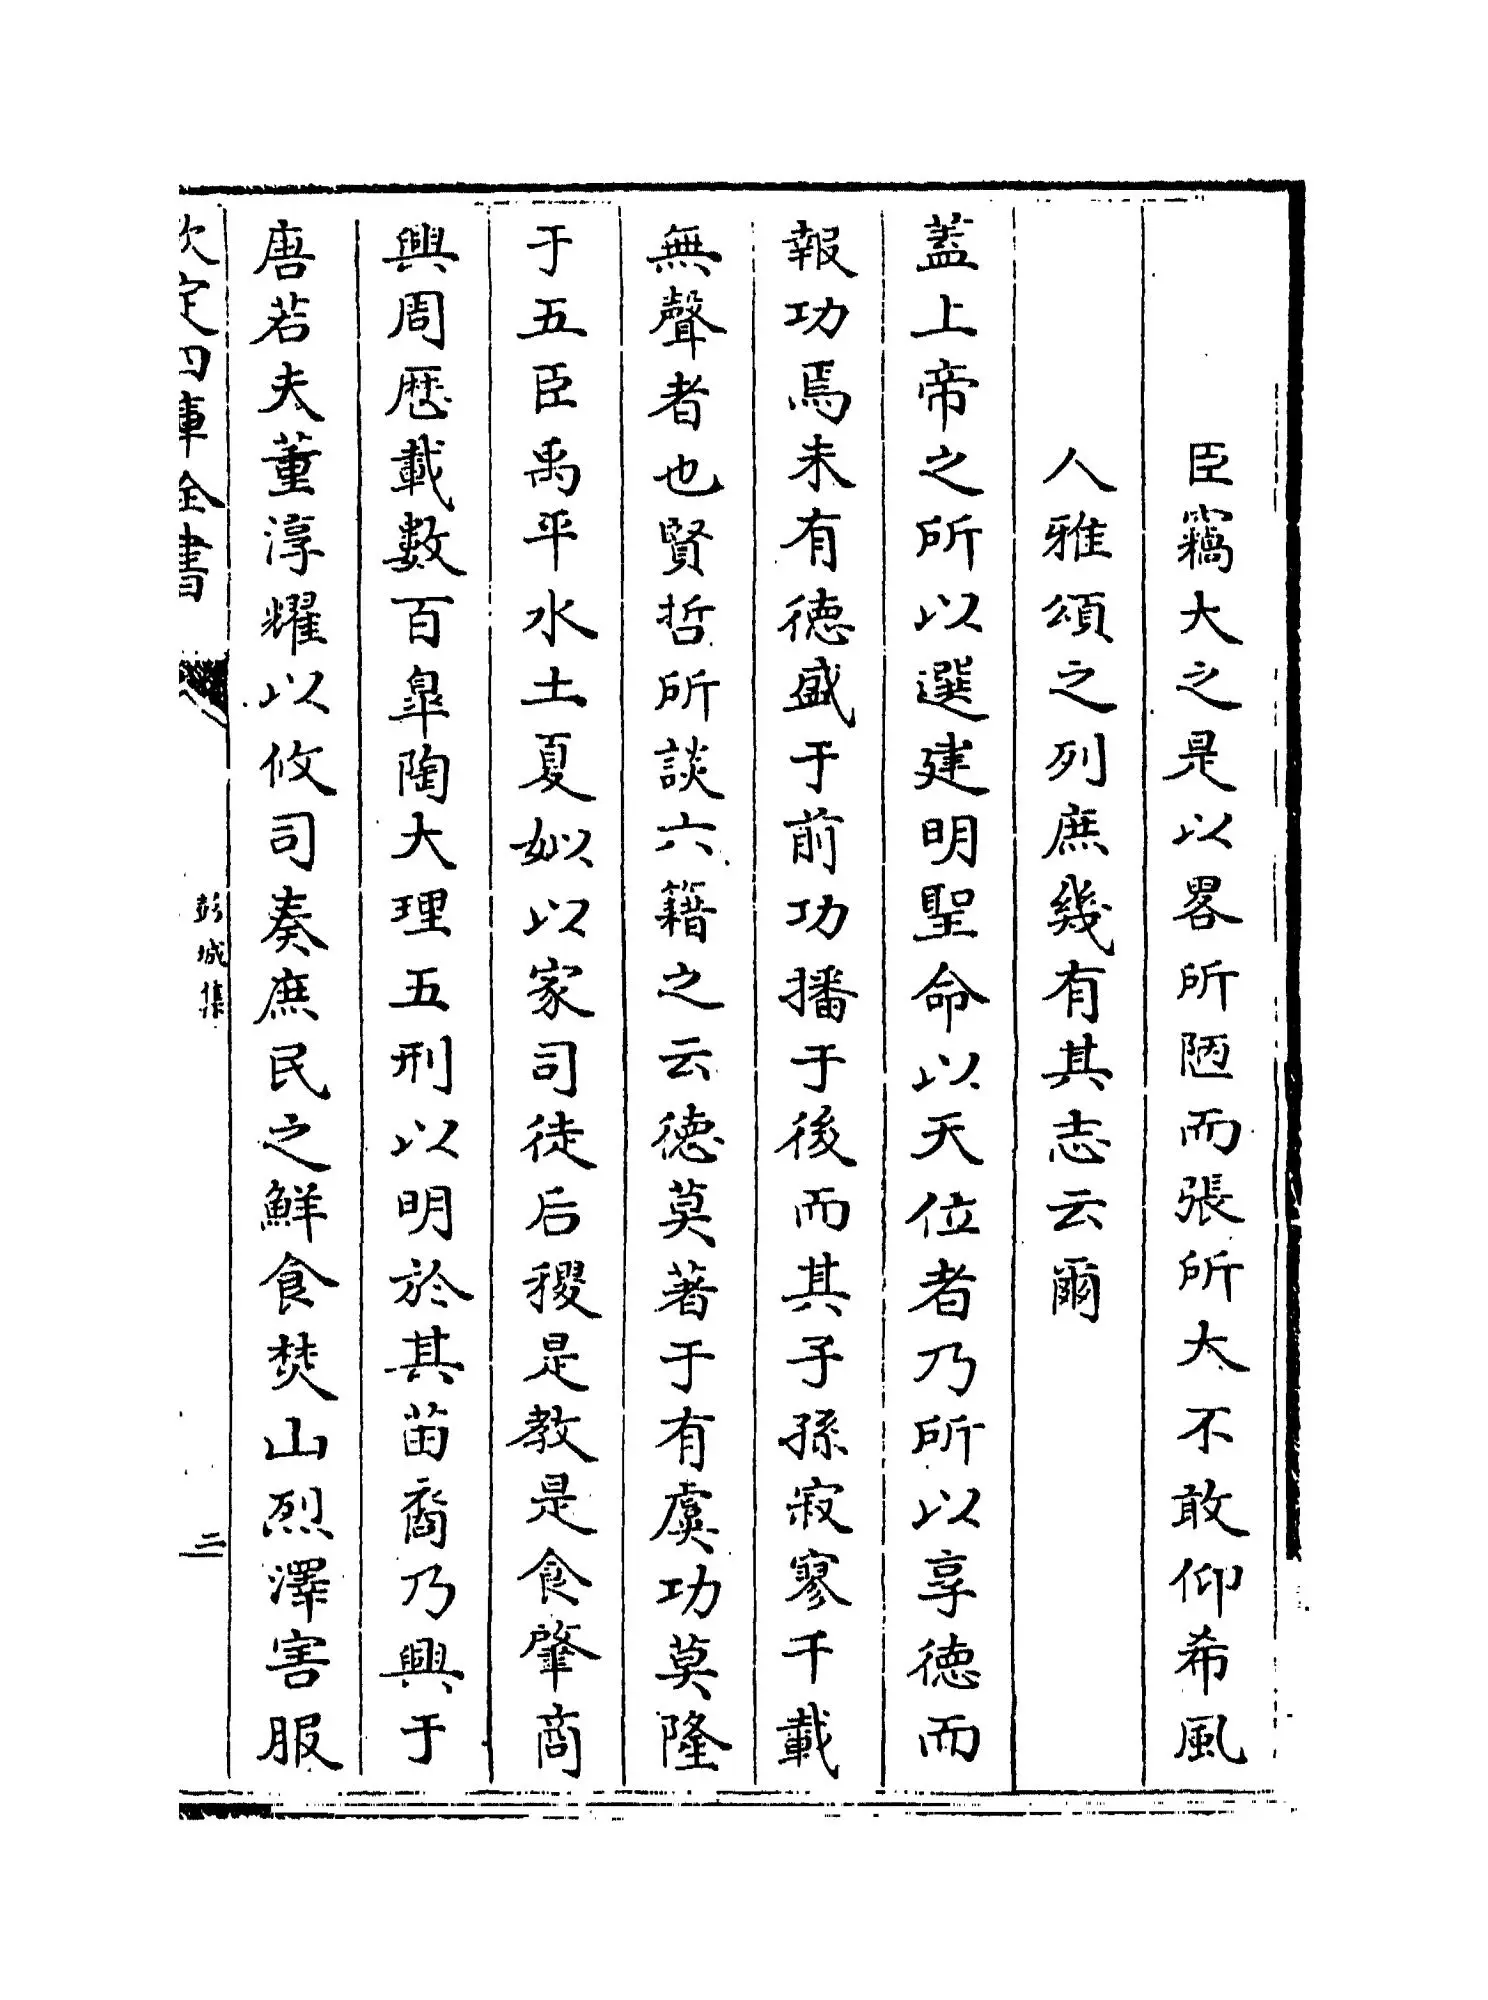 臣竊大之是以畧所陋而張所大不敢仰希風
人雅頌之列庶幾有其志云爾
蓋上帝之所以選建明聖命以天位者乃所以享德而
報功焉未有德盛于前功播于後而其子孫寂寥千載
無聲者也賢哲所談六籍之云德莫著于有虞功莫隆
于五臣禹平水土夏姒以家司徒后稷是教是食肇商
興周歴載數百臯陶大理五刑以明於其苗裔乃興于
唐若夫董淳耀以攸司奏庶民之鮮食焚山烈澤害服
欽定四庫全書
彭城集
二